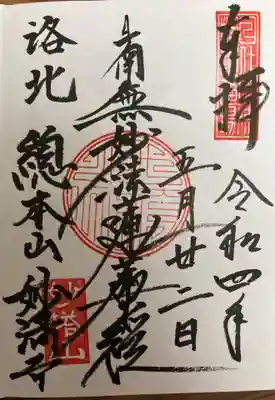 奉拝
令和四年
五月廿二日
南無妙法蓮華経
洛北
總本山妙満寺
妙塔山